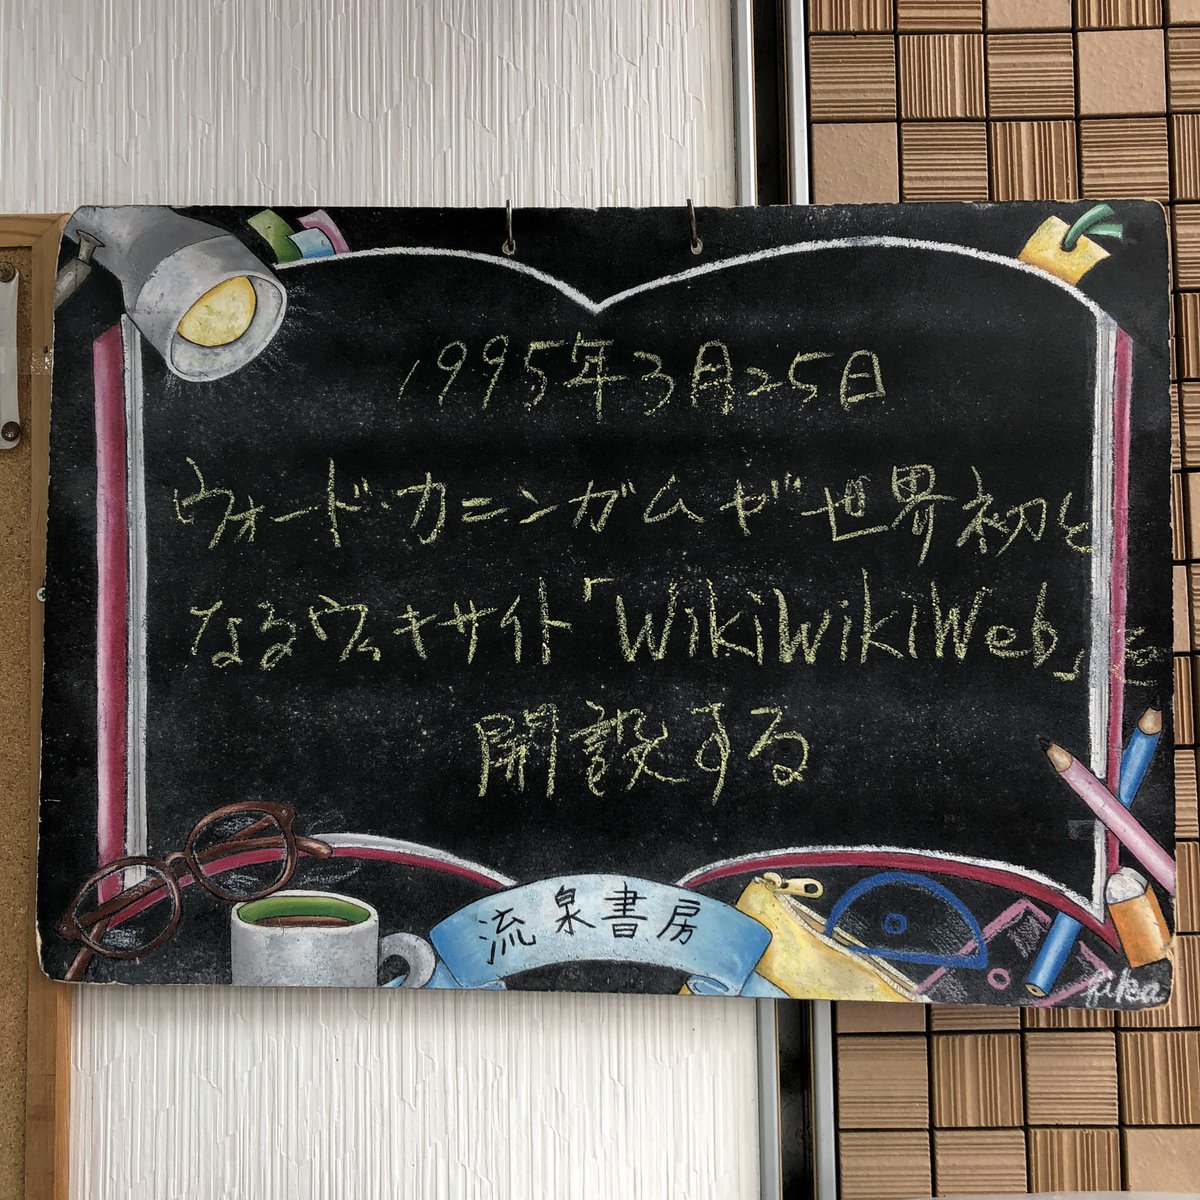 1995年3月25日
ウォード・カニンガムが世界初と
なるウィキサイト「WikiWikiWeb」を
開設する
流泉書房
Rika